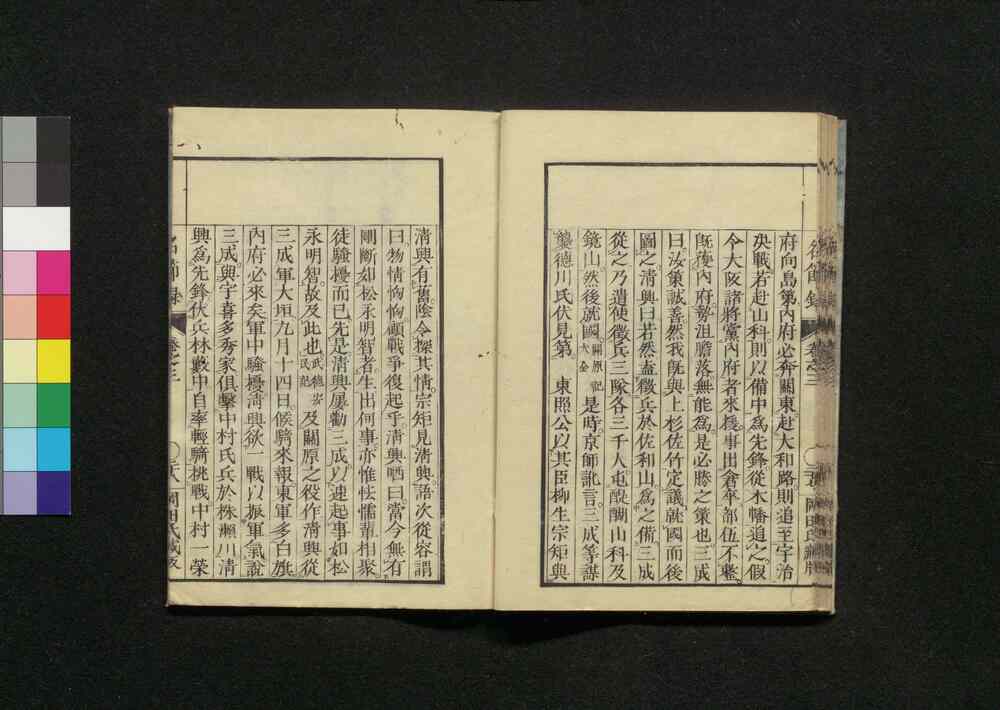 府向島第內府必奔關東赴大和路則追至宇治
決戰若赴山科則以備中爲先鋒從木幡追之假
令大阪諸將黨內府者來援事出倉卒部伍不整
既擭內府勢沮膽落無能爲是必勝之策也三成
曰汝策誠善然我既與上杉佐竹定議就國而後
圖之清興曰若然盍徵兵於佐和山爲之備三成
從之乃遣使徵兵三隊各三千人屯醍醐山科及
鏡山然後就國關原記大全是時京師訛言三成等謀
襲德川氏伏見第 東照公以其臣柳生宗矩與
名節錄 卷之三 岡田氏藏版
清興有舊陰令探其情宗矩見清興語次從容謂
曰物情恟恟顧戰爭復起乎清興哂曰當今無有
剛斷如松永明智者生出何事亦惟怯懦輩相聚
徒騷擾而已先是清興屢勸三成以速起事如松
永明智故及此也武德安民記及關原之役作清興從
三成軍大垣九月十四日候騎來報東軍多白旗
內府必來矣軍中騷擾清興欲一戰以振軍氣說
三成與宇喜多秀家俱擊中村氏兵於株瀨川清
興爲先鋒伏兵林藪中自率輕騎挑戰中村一榮
名節錄 卷之三 〇二八 岡田氏藏版